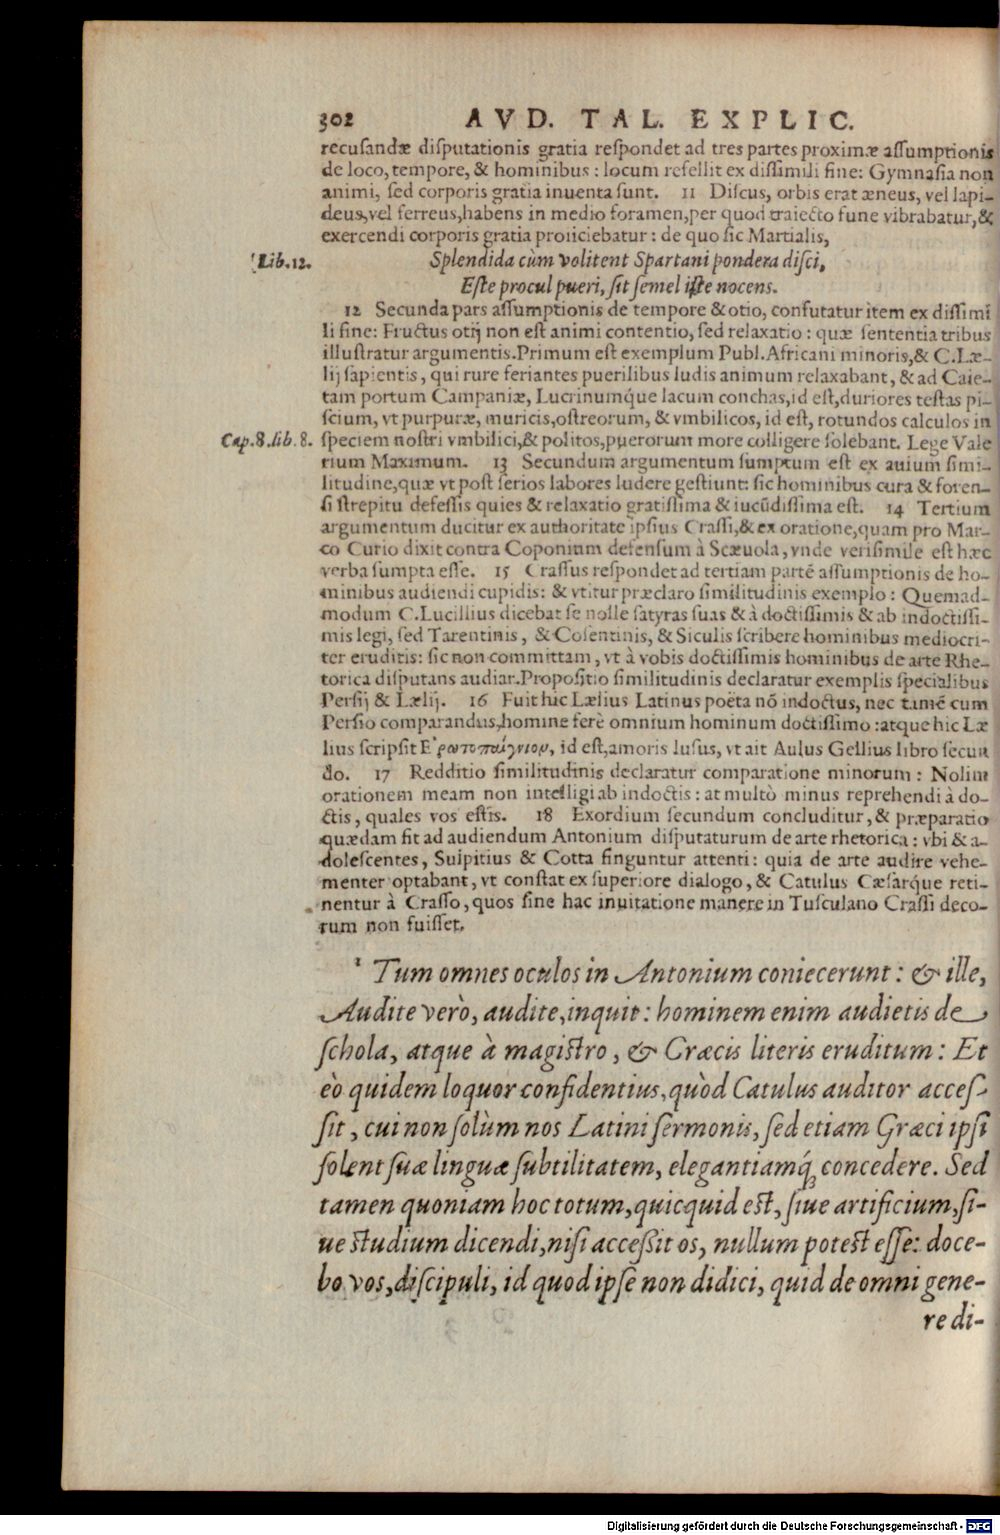 302 AVD. TAL. EXPLIC.
recusandæ disputationis gratia respondet ad tres partes proximæ assumptionis
de loco, tempore, & hominibus : locum refellit ex dissimili fine: Gymnasia non
animi, sed corporis gratia inuenta sunt. 11 Discus, orbis erat æneus, vel lapi-
deus, vel ferreus, habens in medio foramen, per quod traiecto fune vibrabatur, &
exercendi corporis gratia proiiciebatur : de quo sic Martialis,
Lib. 12. Splendida cùm volitent Spartani pondera disci,
Este procul pueri, sit semel iste nocens.
12 Secunda pars assumptionis de tempore & otio, confutatur item ex dissimi
li fine: Fructus otij non est animi contentio, sed relaxatio : quæ sententia tribus
illustratur argumentis. Primum est exemplum Publ. Africani minoris, & C. Læ-
lij sapientis, qui rure feriantes puerilibus ludis animum relaxabant, & ad Caie-
tam portum Campaniæ, Lucrinumque lacum conchas, id est, duriores testas pi-
scium, vt purpuræ, muricis, ostreorum, & vmbilicos, id est, rotundos calculos in
Cap. 8. lib. 8. speciem nostri vmbilici, & politos, puerorum more colligere solebant. Lege Vale
rium Maximum. 13 Secundum argumentum sumptum est ex auium simi-
litudine, quæ vt post serios labores ludere gestiunt: sic hominibus cura & foren-
si strepitu defessis quies & relaxatio gratissima & iucūdissima est. 14 Tertium
argumentum ducitur ex authoritate ipsius Crassi, & ex oratione, quam pro Mar-
co Curio dixit contra Coponium defensum à Scæuola, vnde verisimile est hæc
verba sumpta esse. 15 Crassus respondet ad tertiam partē assumptionis de ho-
minibus audiendi cupidis: & vtitur præclaro similitudinis exemplo : Quemad-
modum C. Lucillius dicebat se nolle satyras suas & à doctissimis & ab indoctissi-
mis legi, sed Tarentinis, & Cosentinis, & Siculis scribere hominibus mediocri-
ter eruditis: sic non committam, vt à vobis doctissimis hominibus de arte Rhe-
torica disputans audiar. Propositio similitudinis declaratur exemplis specialibus
Persij & Lælij. 16 Fuit hic Lælius Latinus poëta nō indoctus, nec tamē cum
Persio comparandus, homine ferè omnium hominum doctissimo : atque hic Læ
lius scripsit Ἐρωτοπαίγνιον, id est, amoris lusus, vt ait Aulus Gellius libro secun
do. 17 Redditio similitudinis declaratur comparatione minorum : Nolim
orationem meam non intelligi ab indoctis : at multò minus reprehendi à do-
ctis, quales vos estis. 18 Exordium secundum concluditur, & præparatio
quædam fit ad audiendum Antonium disputaturum de arte rhetorica : vbi & a-
dolescentes, Sulpitius & Cotta finguntur attenti : quia de arte audire vehe-
menter optabant, vt constat ex superiore dialogo, & Catulus Cæsarque reti-
nentur à Crasso, quos sine hac inuitatione manere in Tusculano Crassi deco-
rum non fuisset.
1 Tum omnes oculos in Antonium coniecerunt : & ille,
Audite verò, audite, inquit : hominem enim audietis de
schola, atque à magistro, & Græcis literis eruditum : Et
eò quidem loquor confidentius, quòd Catulus auditor acces-
sit, cui non solùm nos Latini sermonis, sed etiam Græci ipsi
solent suæ linguæ subtilitatem, elegantiamq́; concedere. Sed
tamen quoniam hoc totum, quicquid est, siue artificium, si-
ue studium dicendi, nisi accessit os, nullum potest esse: doce-
bo vos, discipuli, id quod ipse non didici, quid de omni gene-
re di-
Digitalisierung gefördert durch die Deutsche Forschungsgemeinschaft - DFG